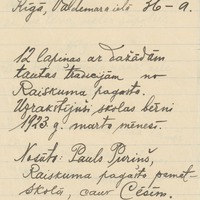 Rīgā, Valdemara ielā 36-a.
12 lapiņas ar dažādām
tautas tradicijām no
Raiskuma pagasta.
Uzrakstījuši skolas bērni
1923. g. marta mēnesī.
Nosūta: Pauls Pūriņš,
Raiskuma pagasta pamat-
skolā, caur Cēsīm.